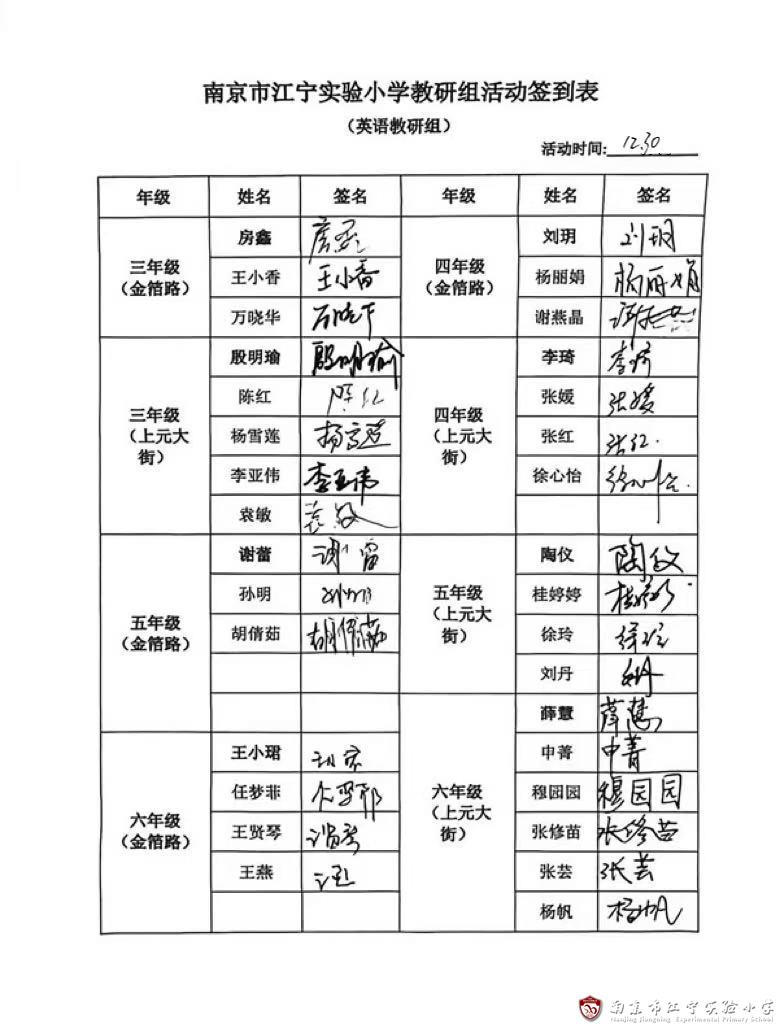 南京市江宁实验小学教研组活动签到表
（英语教研组）
活动时间: 12.30
年级 姓名 签名 年级 姓名 签名
三年级（金箔路） 房鑫 房鑫 四年级（金箔路） 刘玥 刘玥
王小香 王小香 杨丽娟 杨丽娟
万晓华 谢燕晶
三年级（上元大街） 殷明瑜 殷明瑜 四年级（上元大街） 李琦 李琦
陈红 陈红 张媛 张媛
杨雪莲 杨雪莲 张红 张红.
李亚伟 李亚伟 徐心怡 徐心怡
袁敏 袁敏
五年级（金箔路） 谢蕾 谢蕾 五年级（上元大街） 陶仪 陶仪
孙明 孙明 桂婷婷 桂婷婷
胡倩茹 胡倩茹 徐玲 徐玲
刘丹 刘丹
六年级（上元大街） 薛慧 薛慧
六年级（金箔路） 王小珺 申菁 申菁
任梦菲 穆园园 穆园园
王贤琴 张修苗 张修苗
王燕 张芸 张芸
杨帆 杨帆
南京市江宁实验小学
Nanjing Jiangning Experimental Primary School